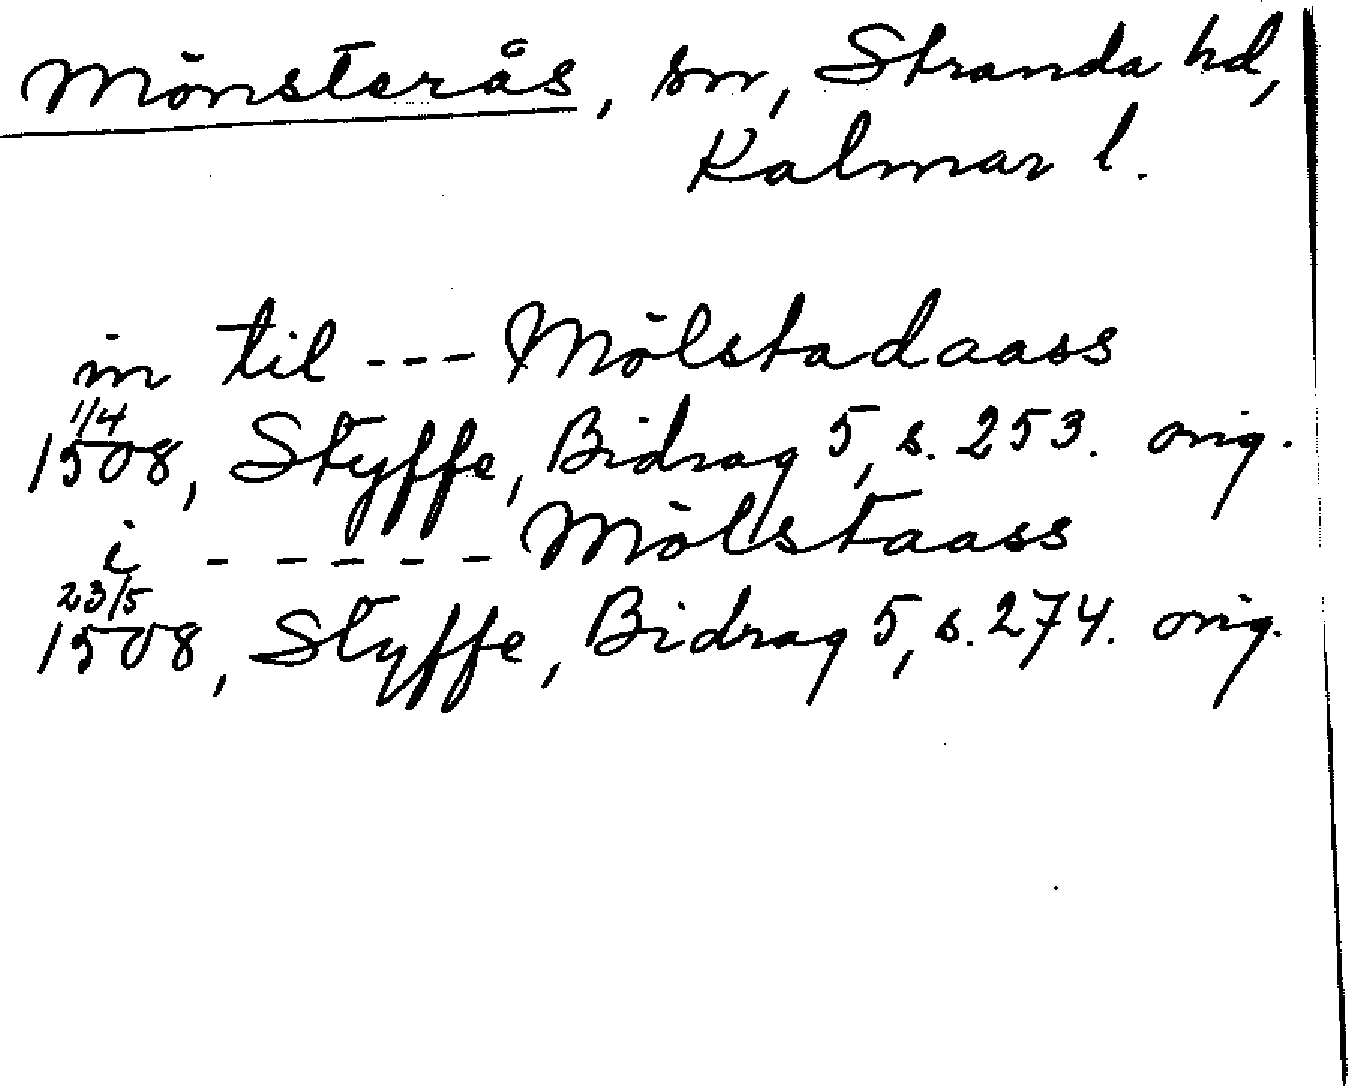 Mönsterås, sn, Stranda hd,
Kalmar l.
in til --- Mölstadaass
1/4
1508, Styffe, Bidrag 5, s. 253. orig.
i ----- Mölstaass
23/5
1508, Styffe, Bidrag 5, s. 274. orig.